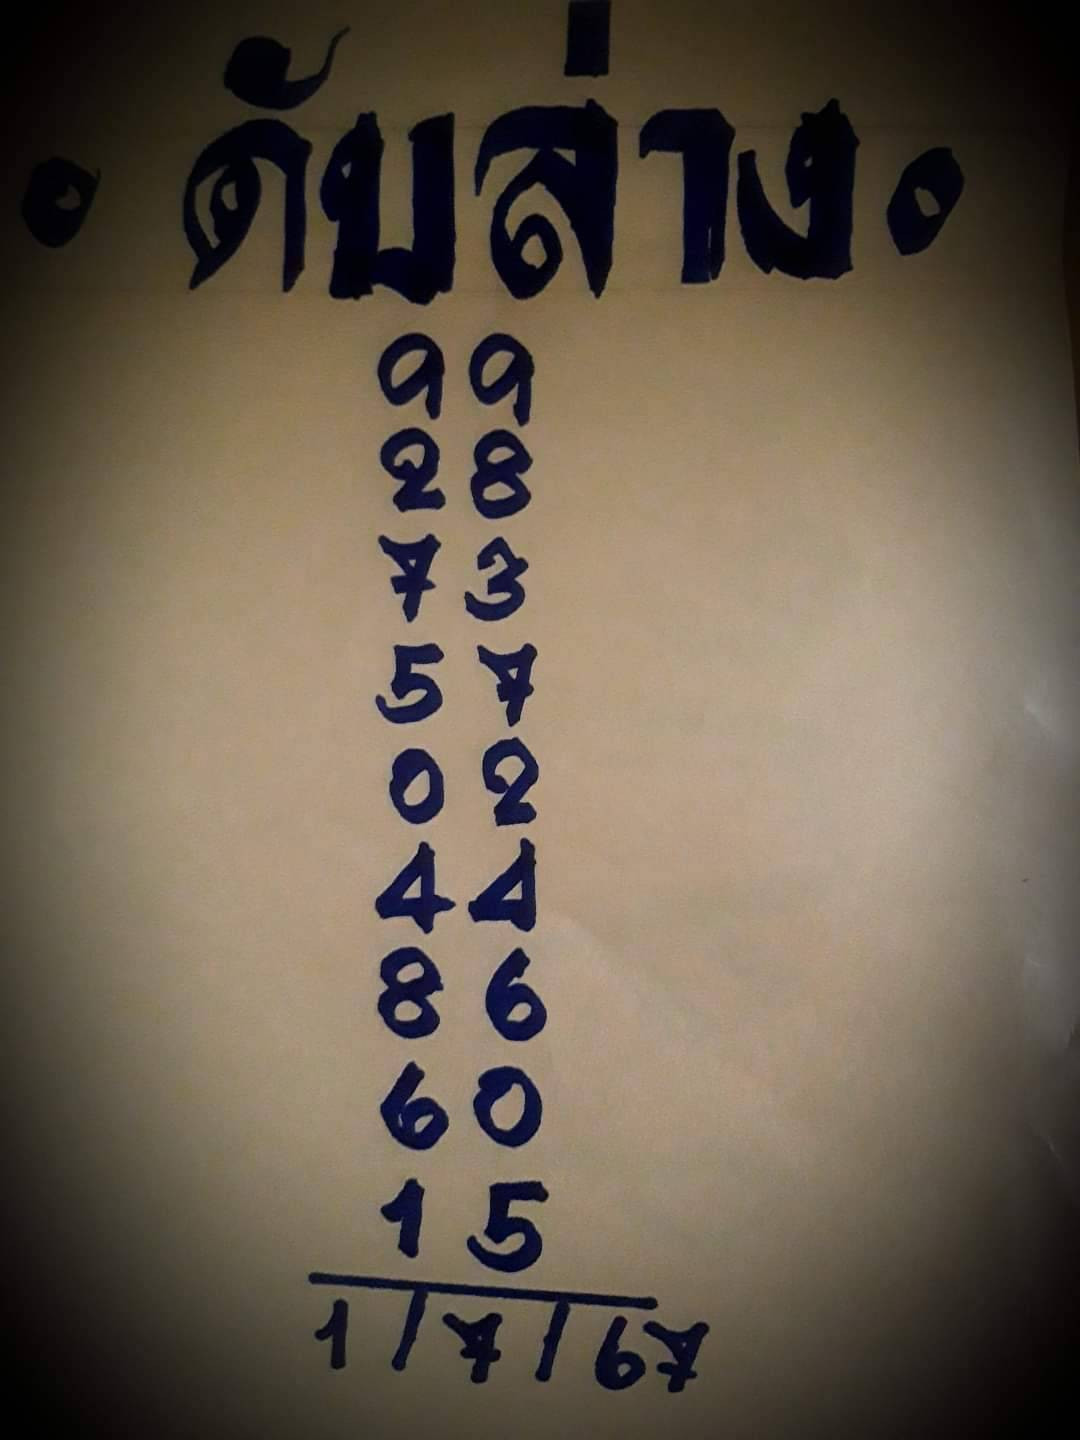 • ดับล่าง •
9 9
2 8
7 3
5 7
0 2
4 4
8 6
6 0
1 5
1/7/67